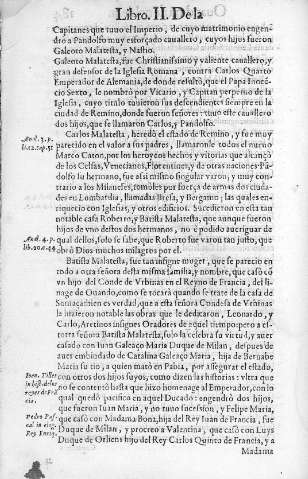 Libro. II. De la
Capitanes que tuuo el Imperio, de cuyo matrimonio engen-
dro a Pandolfo muy esforçado cauallero, cuyo hijos fueron
Galeoto Malatesta, y
Galeoto Malatesta, fue Christianissimo y valiente cauallero, y
gran defensor de la Iglesia Romana, contra Carlos Quarto
Emperador de Alemania, de donde resultò, que el Papa Inoce-
cio Sexto, le nombrò por Vicario, y Capitan perpetuo de la
Iglesia, cuyo titulo tuuieron sus descendientes siempre en la
ciudad de Remino, donde fueron señores: tuuo este cauallero
dos hijos, que se llamaron Carlos, y Pandolfo.
Carlos Malatesta, heredò el estado de Remino, y fue muy
parecido en el valor a sus padres, llamaronle todos el nueuo
Marco Caton, por los heroycos hechos y vitorias que alcançò
de los Celsas, Venecianos, Florentines, y de otras naciones: Pã-
dolfo su hermano, fue assi mismo singular varon, y muy con-
trario a los Milaneses, tomoles por fuerça de armas dos ciuda-
des en Lombardia, llamadas Bresa, y Bergamo, las quales en-
riquecio con Iglesias, y otros edificios. Sucedieron en esta tan
notable casa Roberto, y Batista Malatesta, que aunque fueron
hijos de vno destos dos hermanos, no è podido aueriguar de
qual dellos, solo se sabe, que Roberto fue varon tan justo, que
obrò Dios muchos milagros por el.
Batista Malatesta, fue tan insigne muger, que se parecio en
todo a otra señora desta misma familia, y nombre, que casò cõ
vn hijo del Conde de Vrbinas en el Reyno de Francia, del li-
nage de Ouando, como se tocarà quando se trate de la casa de
es verdad, que a esta señora Condesa de Vrbinas
la hizieron notables obras que le dedicaron, Leonardo, y
Carlo, Aretinos insignes Oradores de aquel tiempo: pero a es-
torra señora Batista Malatesta, solo la celebra su virtud, y auer
casado con Iuan Galeaço Maria Duque de Milan, despues de
auer embiudado de Catalina Galeaço Maria, hija de Bernabe
Maria su tio, a quien matò en Pabia, por assegurar el estado,
con otros dos hijos suyos, como dizen las historias: vltra que
no se contentò hasta que hizo homenage al Emperador, con lo
qual quedò pacifico en aquel Ducado: engendrò dos hijos,
que fueron Iuan Maria, y no tuuo sucession, y Felipe Maria,
que casò con Madama Bona, hija del Rey Iuan de Francia, fue
Duque de Milan, y procreò a Valentina, que casò con Luys
Duque de Orliens hijo del Rey Carlos Quinto de Francia, y a
Madama